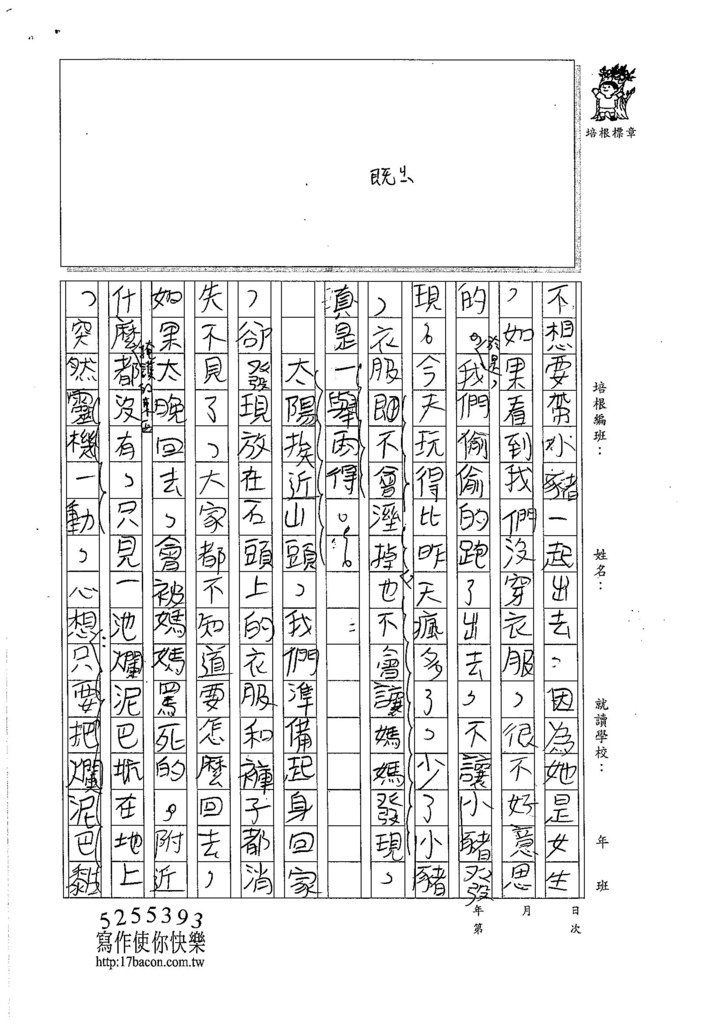 培根標章
既出
培根編班：
姓名：
就讀學校：
年 班
不想要帶小豬一起出去，因為她是女生
，如果看到我們沒穿衣服，很不好意思
的。我們偷偷的跑了出去，不讓小豬發
於是，
現。今天玩得比昨天瘋多了，少了小豬
，衣服即不會溼掉也不會讓媽媽發現，
真是一舉兩得。
太陽挨近山頭，我們準備起身回家
，卻發現放在石頭上的衣服和褲子都消
失不見了，大家都不知道要怎麼回去，
如果太晚回去，會被媽媽罵死的。附近
掩護的東西
什麼都沒有，只見一池爛泥巴坑在地上
，突然靈機一動，心想只要把爛泥巴黏
年 月 日
第 次
5255393
寫作使你快樂
http:17bacon.com.tw